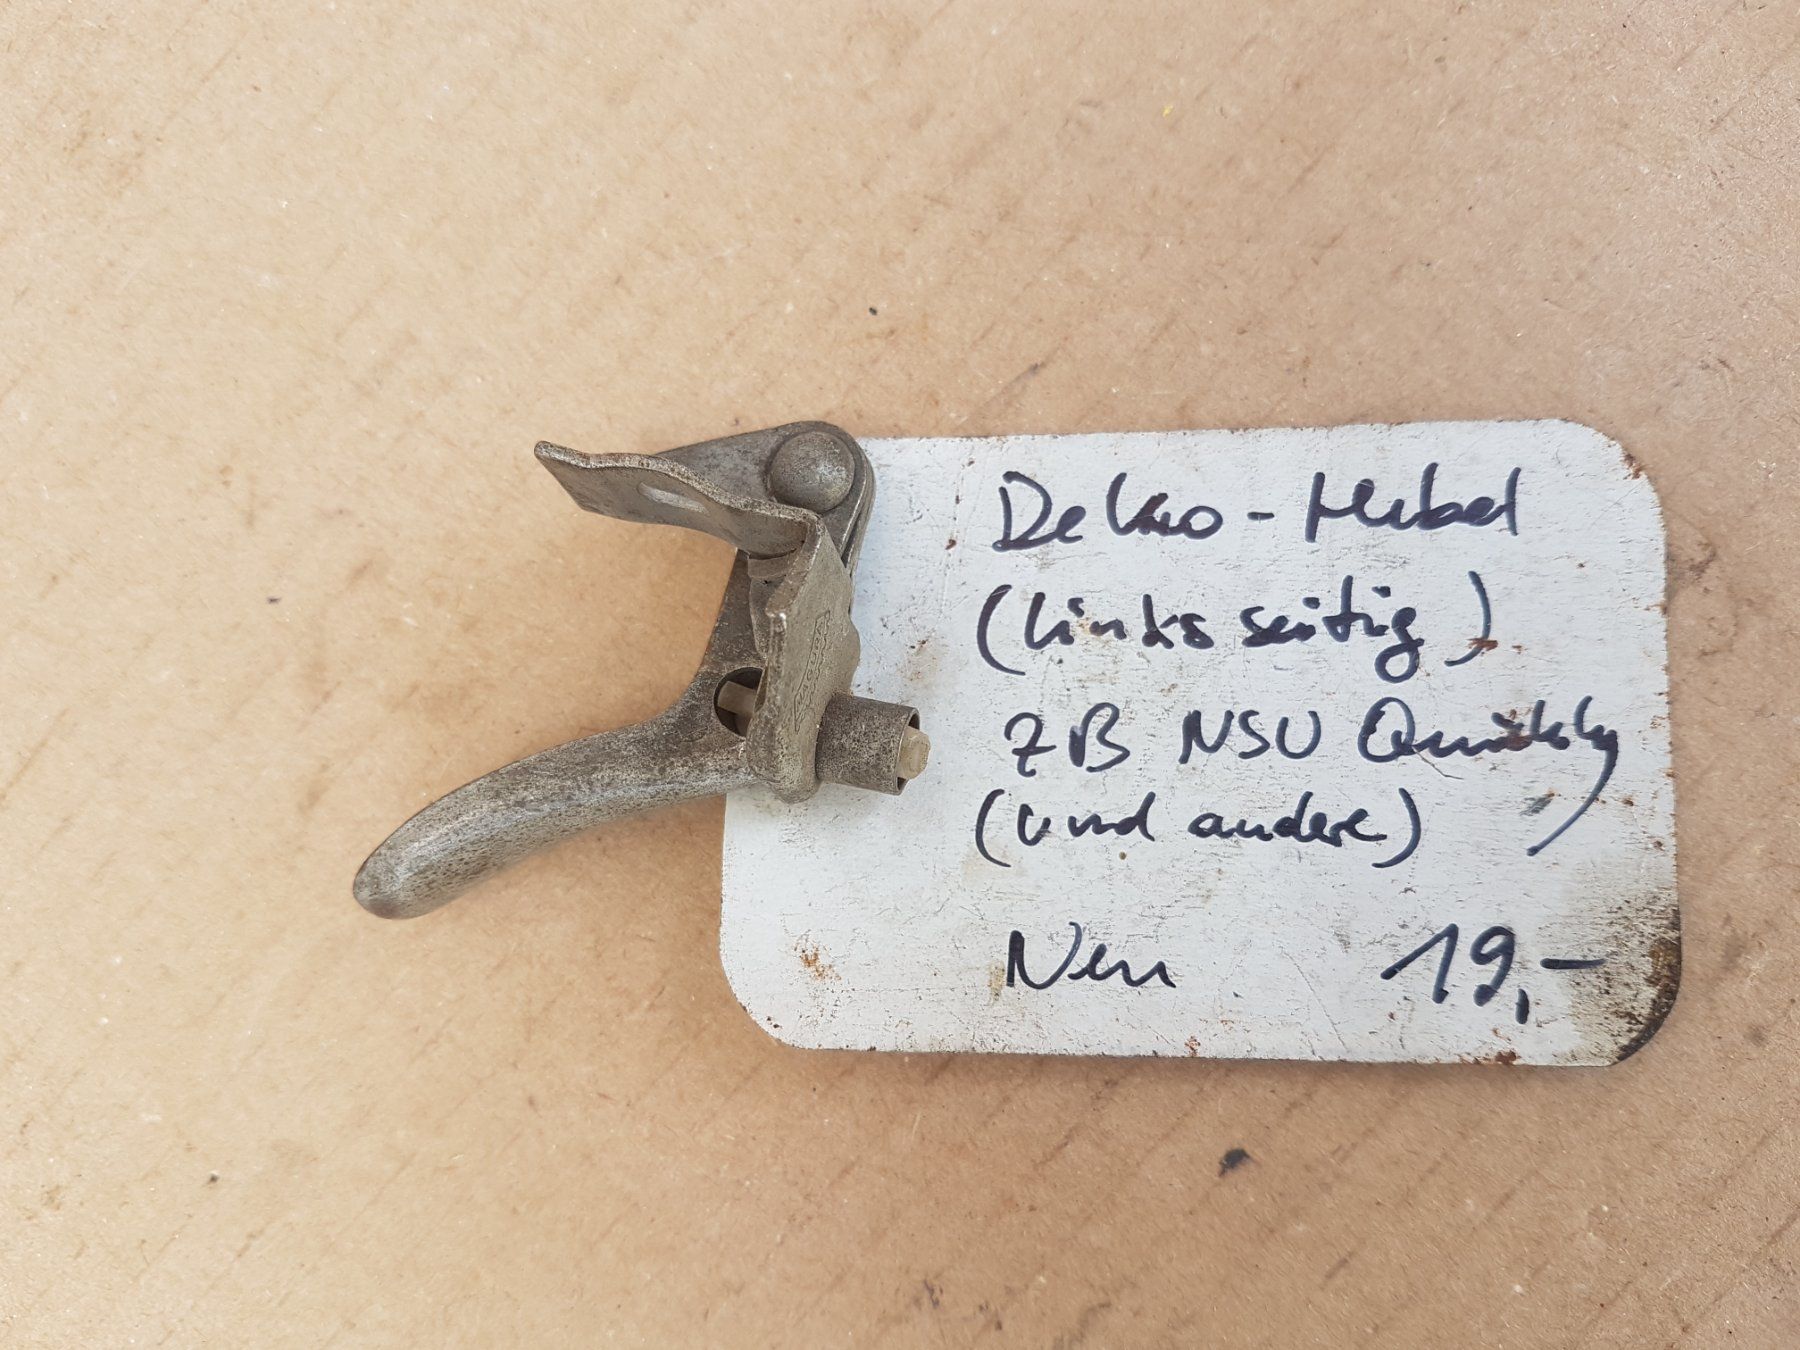 Deko-Hebel
(linksseitig)
zB NSU Quickly
(und andere)
Neu 19,-
MAGURA